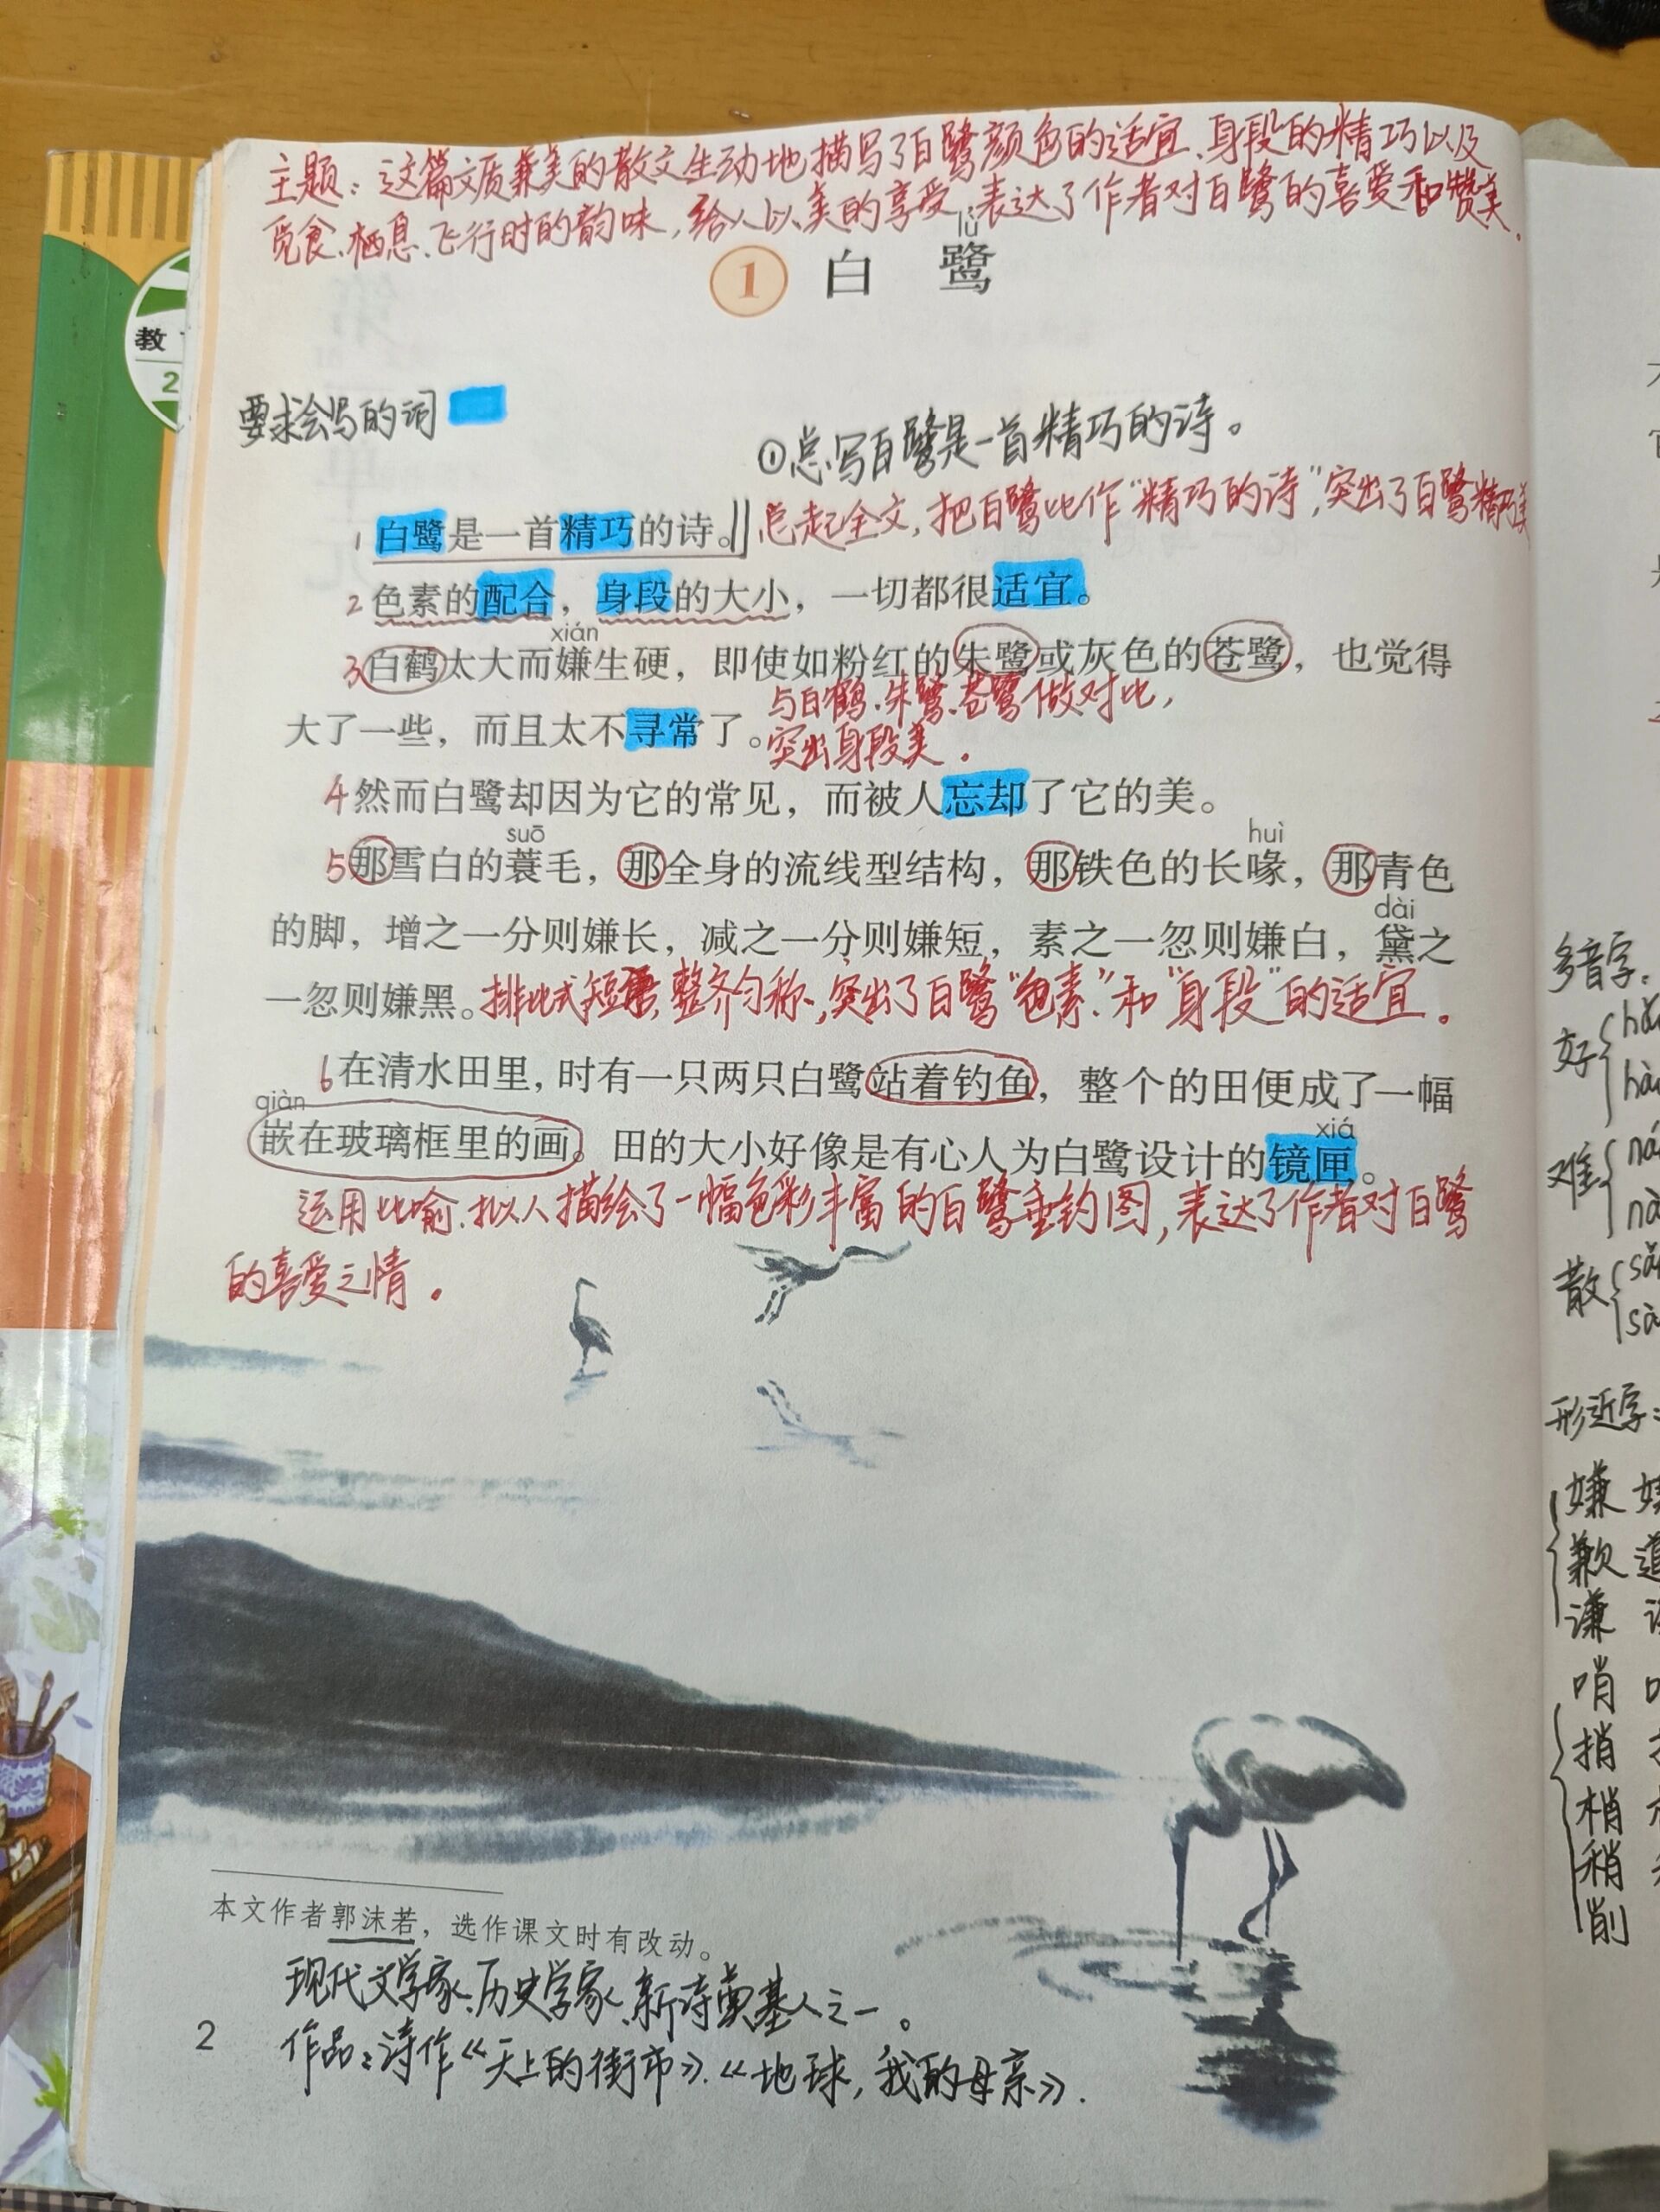 主题：这篇文质兼美的散文生动地描写了白鹭颜色的适宜、身段的精巧以及
觅食、栖息、飞行时的韵味，给人以美的享受，表达了作者对白鹭的喜爱和赞美。
lù
1 白 鹭
要求会写的词
①总写白鹭是一首精巧的诗。
1 白鹭是一首精巧的诗。
总起全文，把白鹭比作“精巧的诗”，突出了白鹭精巧美
2 色素的配合，身段的大小，一切都很适宜。
xián
3 白鹤太大而嫌生硬，即使如粉红的朱鹭或灰色的苍鹭，也觉得
大了一些，而且太不寻常了。
与白鹤、朱鹭、苍鹭做对比，
突出身段美。
4 然而白鹭却因为它的常见，而被人忘却了它的美。
suō huì
5 那雪白的蓑毛，那全身的流线型结构，那铁色的长喙，那青色
dài
的脚，增之一分则嫌长，减之一分则嫌短，素之一忽则嫌白，黛之
一忽则嫌黑。
排比式短语，整齐匀称，突出了白鹭“色素”和“身段”的适宜。
6 在清水田里，时有一只两只白鹭站着钓鱼，整个的田便成了一幅
qiàn xiá
嵌在玻璃框里的画。田的大小好像是有心人为白鹭设计的镜匣。
运用比喻、拟人描绘了一幅色彩丰富的白鹭垂钓图，表达了作者对白鹭
的喜爱之情。
本文作者郭沫若，选作课文时有改动。
现代文学家、历史学家、新诗奠基人之一。
作品：诗作《天上的街市》、《地球，我的母亲》.
2
教
2
多音字：
好
难
散
形近字：
嫌
歉
谦
哨
捎
梢
稍
削